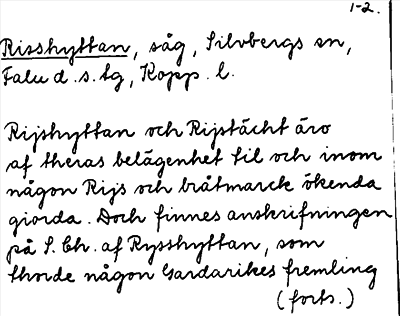 1-2.
Risshyttan, såg, Silvbergs sn,
Falu d. s. tg, Kopp. l.
Rijshyttan och Rijstächt äro
af theras belägenhet til och inom
någon Rijs och bråtmarck ökenda
giorda. Doch finnes anskrifningen
på S. Ch. af Rysshyttan, som
thorde någon Gardarikes fremling
(forts.)